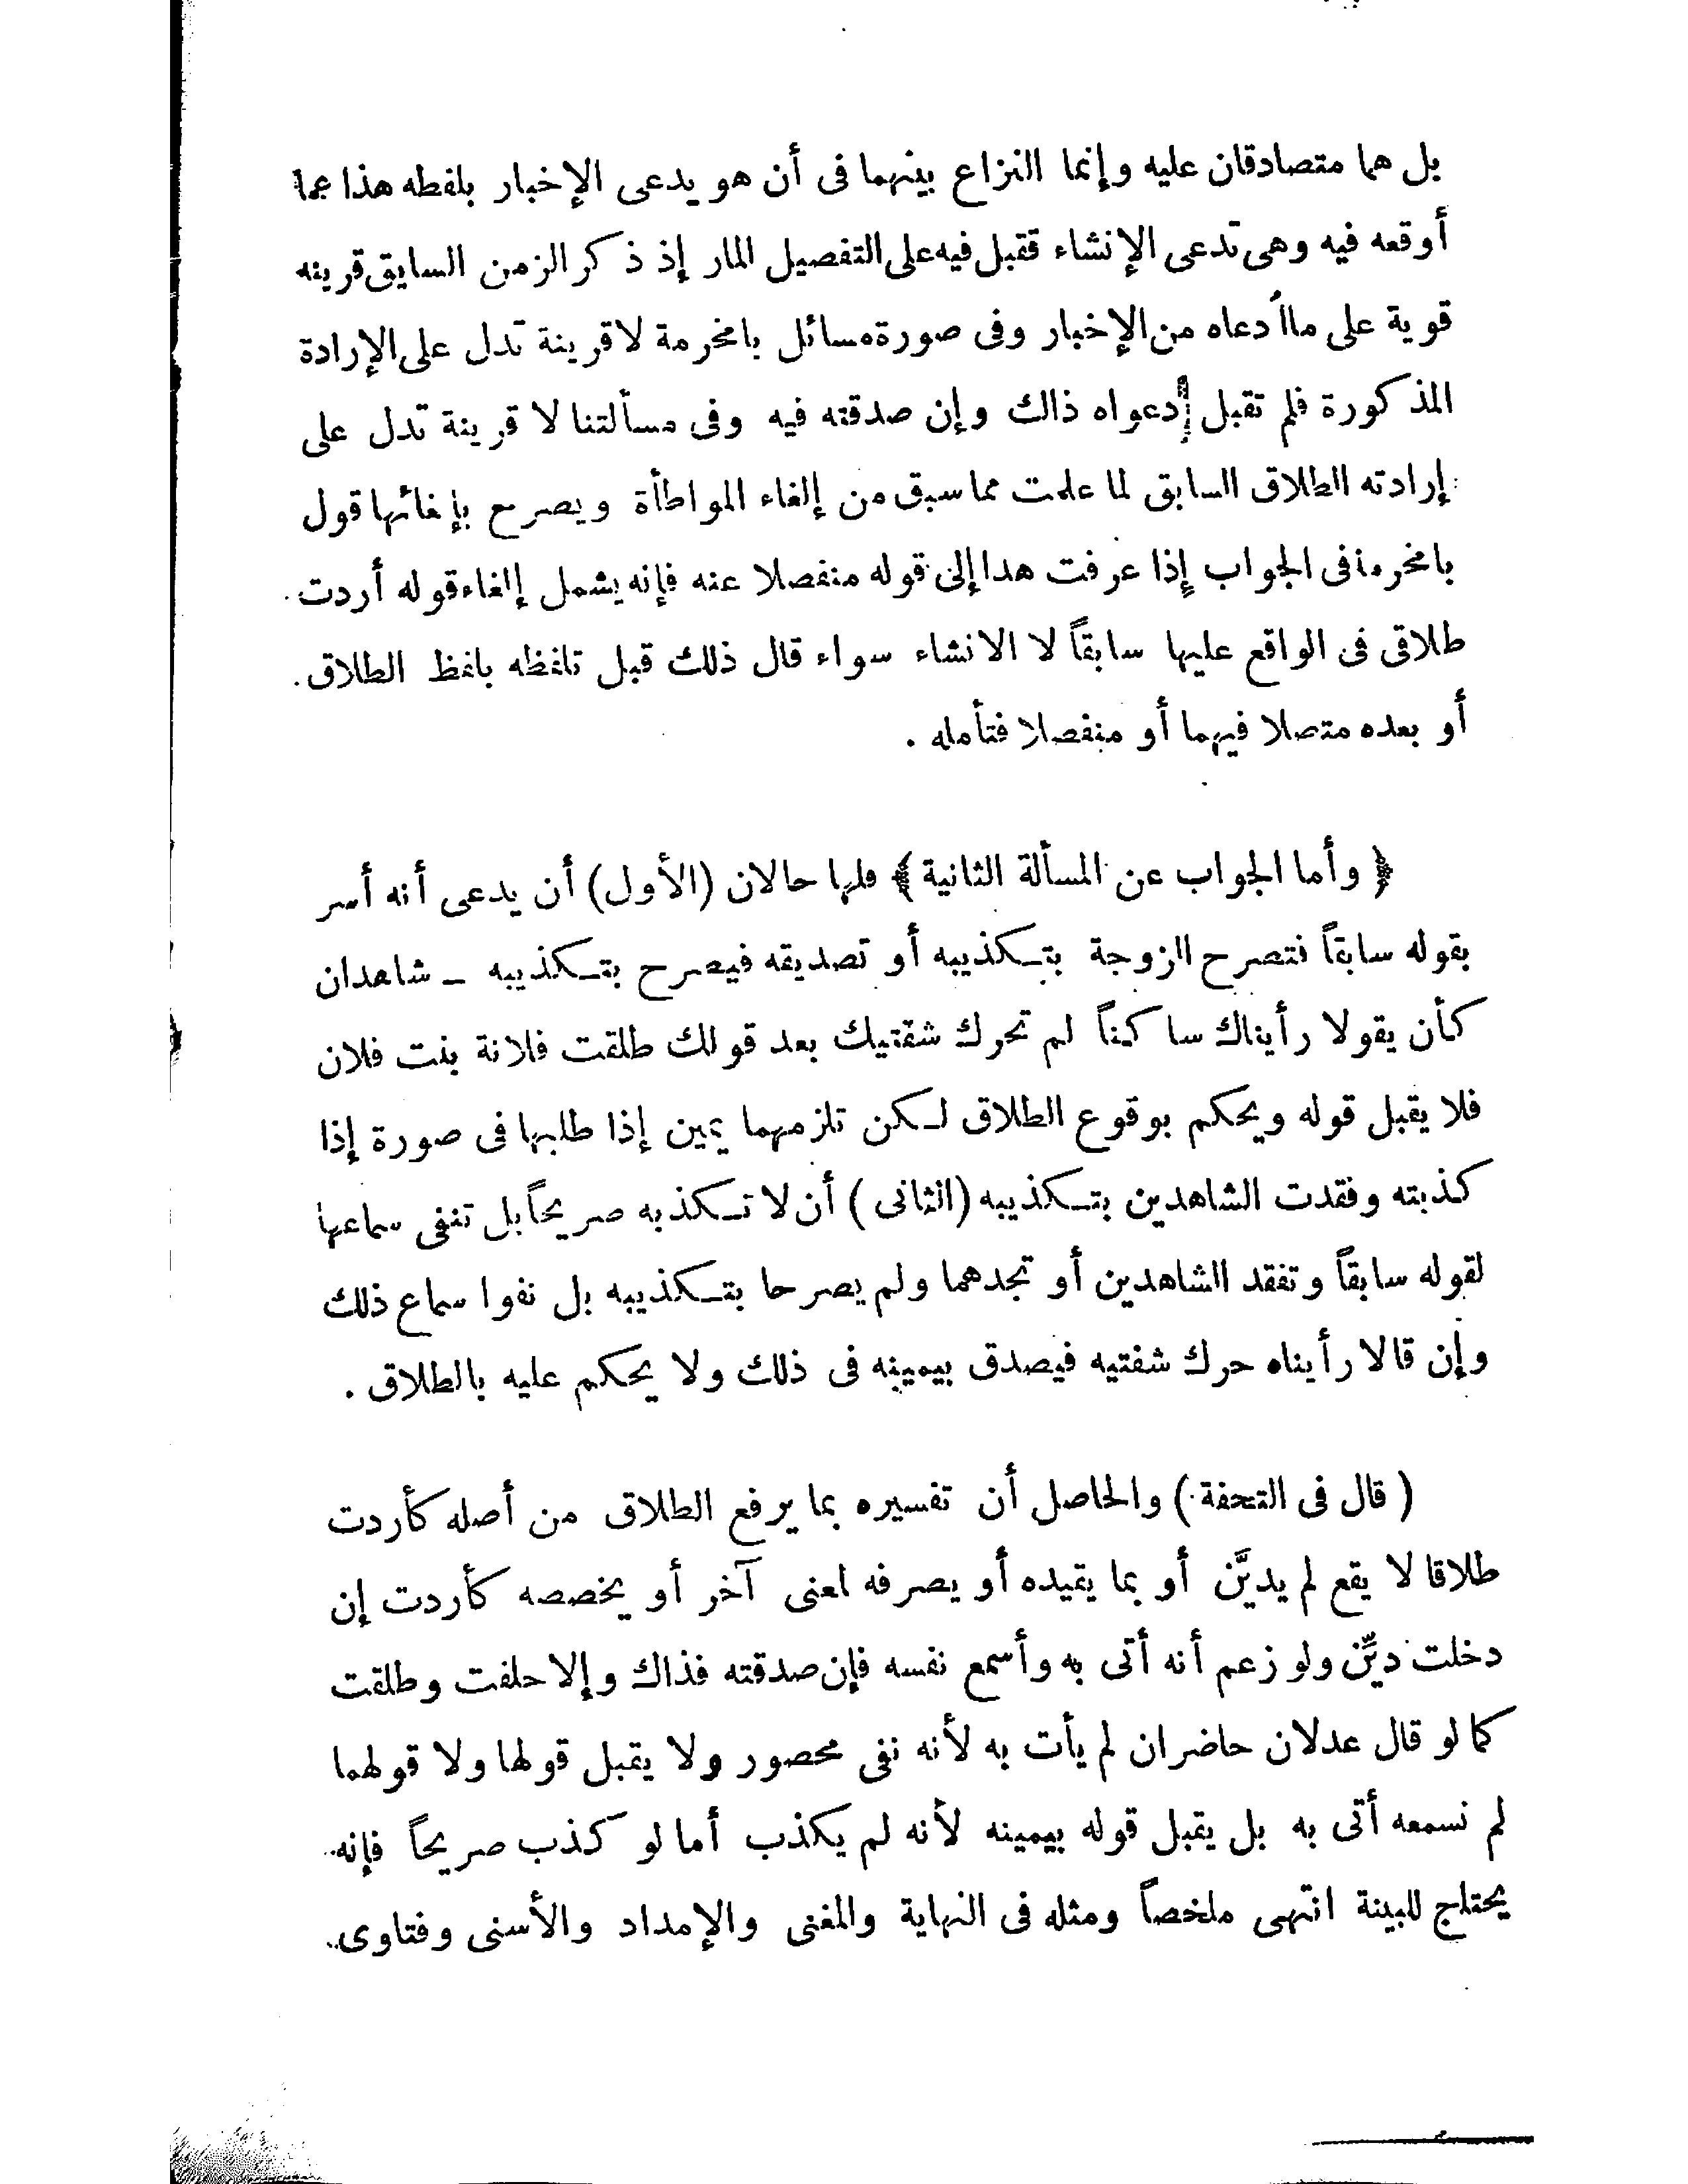 بل هما متصادقان عليه وإنما النزاع بينهما فى أن هو يدعى الإخبار بلفظه هذا عما
أوقعه فيه وهى تدعى الإنشاء فقبل فيه على التفصيل المار إذ ذكر الزمن السابق قرينه
قوية على ماادعاه من الإخبار وفى صورة مسائل بامخرمة لا قرينة تدل على الإرادة
المذكورة فلم تقبل دعواه ذالك وإن صدقته فيه وفى مسألتنا لا قرينة تدل على
إرادته الطلاق السابق لما علمت مما سبق من إلغاء المواطأة ويصرح بإلغائها قول
بامخرمة فى الجواب إذا عرفت هدا إلى قوله منفصلا عنه فإنه يشمل إلغاء قوله أردت
طلاقى فى الواقع عليها سابقاً لا الانشاء سواء قال ذلك قبل تلفظه بلفظ الطلاق .
أو بعده متصلا فيهما أو منفصلا فتأمله .
﴿ وأما الجواب عن المسألة الثانية ﴾ فلها حالان (الأول) أن يدعى أنه أسر
بقوله سابقاً فتصرح الزوجة بتـكذيبه أو تصديقه فيصرح بتـكذيبه ـ شاهدان
كأن يقولا رأيناك ساكناً لم تحرك شفتيك بعد قولك طلقت فلانة بنت فلان
فلا يقبل قوله ويحكم بوقوع الطلاق لـكن تلزمهما يمين إذا طلبها فى صورة إذا
كذبته وفقدت الشاهدين بتـكذيبه (الثانى) أن لا تـكذبه صريحاً بل تنفى سماعها
لقوله سابقاً وتفقد الشاهدين أو تجدهما ولم يصرحا بتـكذيبه بل نفوا سماع ذلك
وإن قالا رأيناه حرك شفتيه فيصدق بيمينه فى ذلك ولا يحكم عليه بالطلاق .
( قال فى التحفة ) والحاصل أن تفسيره بما يرفع الطلاق من أصله كأردت
طلاقا لا يقع لم يديَّن أو بما يقيده أو يصرفه لمعنى آخر أو يخصصه كأردت إن
دخلت ديِّن ولو زعم أنه أتى به وأسمع نفسه فإن صدقته فذاك وإلا حلفت وطلقت
كما لو قال عدلان حاضران لم يأت به لأنه نفى محصور ولا يقبل قولها ولا قولهما
لم نسمعه أتى به بل يقبل قوله بيمينه لأنه لم يكذب أما لو كذب صريحاً فإنه
يحتاج للبينة انتهى ملخصاً ومثله فى النهاية والمغنى والإمداد والأسنى وفتاوى